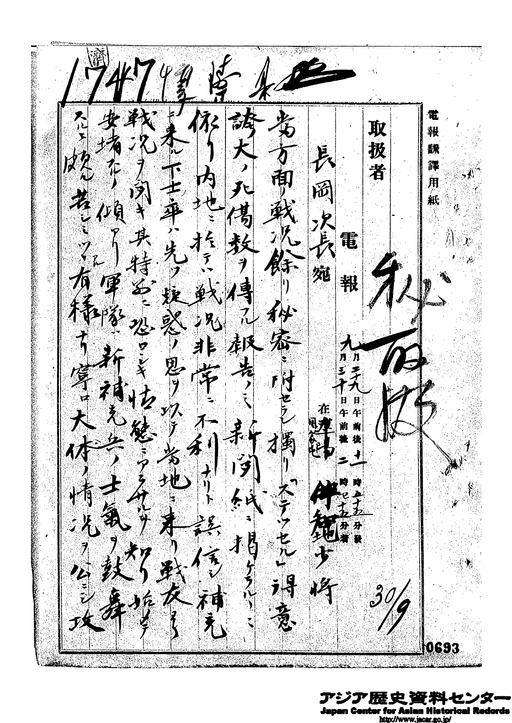 濟
電報飜譯用紙
秘
30/9
取扱者
電報
九月二十九日午前後十一時五十五分發
九月三十日午前後二時七十五分着
長岡次長宛
在 少將
當方面ノ戰况餘リ秘密ニ附セラレ獨リ「ステッセル」得意
誇大ノ死傷数ヲ傳フル報告ノミ新聞紙ニ掲ケラルヽニ
依リ内地ニ於テハ戰况非常ニ不利ナリト誤信シ補充
ニ来ル下士卒ハ先ツ疑惑ノ思ヲ以テ當地ニ来リ戰友ヨリ
戰况ヲ聞キ其特别ニ恐ロシキ情態ニアラサルヲ知リ始メテ
安堵スルノ傾アリ軍隊ハ新補充兵ノ士氣ヲ鼓舞
スルニ頗ル苦シミツヽ有様ナリ寧ロ大体ノ情况ヲ公ニシ攻
0693
アジア歴史資料センター
Japan Center for Asian Historical Records
http://www.jacar.go.jp/